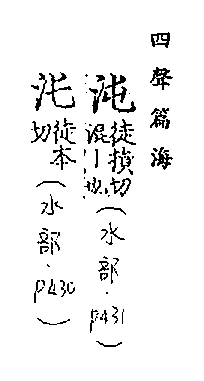 四聲篇海
沌徒損切混丨也(水部.P431)
沌徒本切(水部.P430)